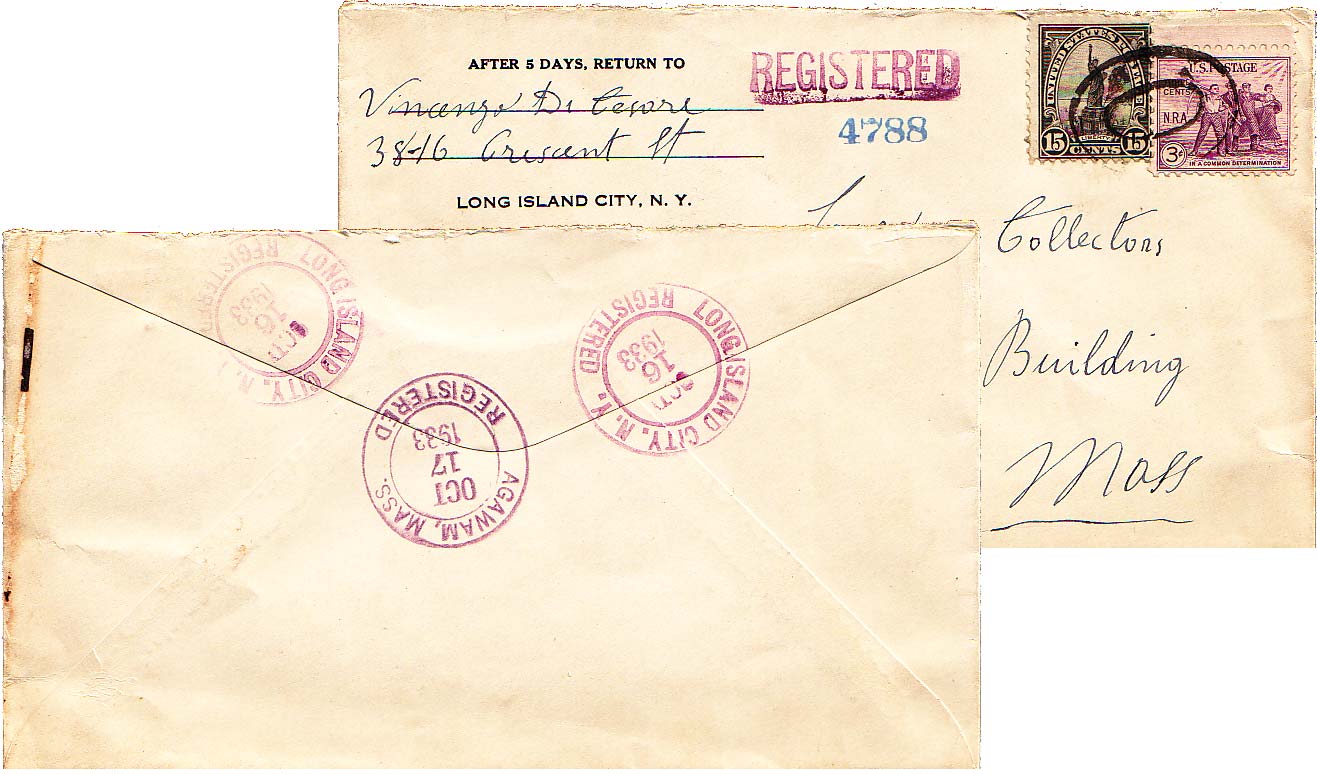 AFTER 5 DAYS, RETURN TO
Vincenzo Di Cesare
38-16 Crescent St
LONG ISLAND CITY, N. Y.
REGISTERED
4788
UNITED STATES POSTAGE
15 LIBERTY 15
CENTS
U.S. POSTAGE
CENTS
N.R.A.
3¢
IN A COMMON DETERMINATION
Collectors
Building
Mass
LONG ISLAND CITY, N. Y.
REGISTERED
OCT
16
1933
LONG ISLAND CITY, N. Y.
REGISTERED
OCT
16
1933
AGAWAM, MASS.
REGISTERED
OCT
17
1933